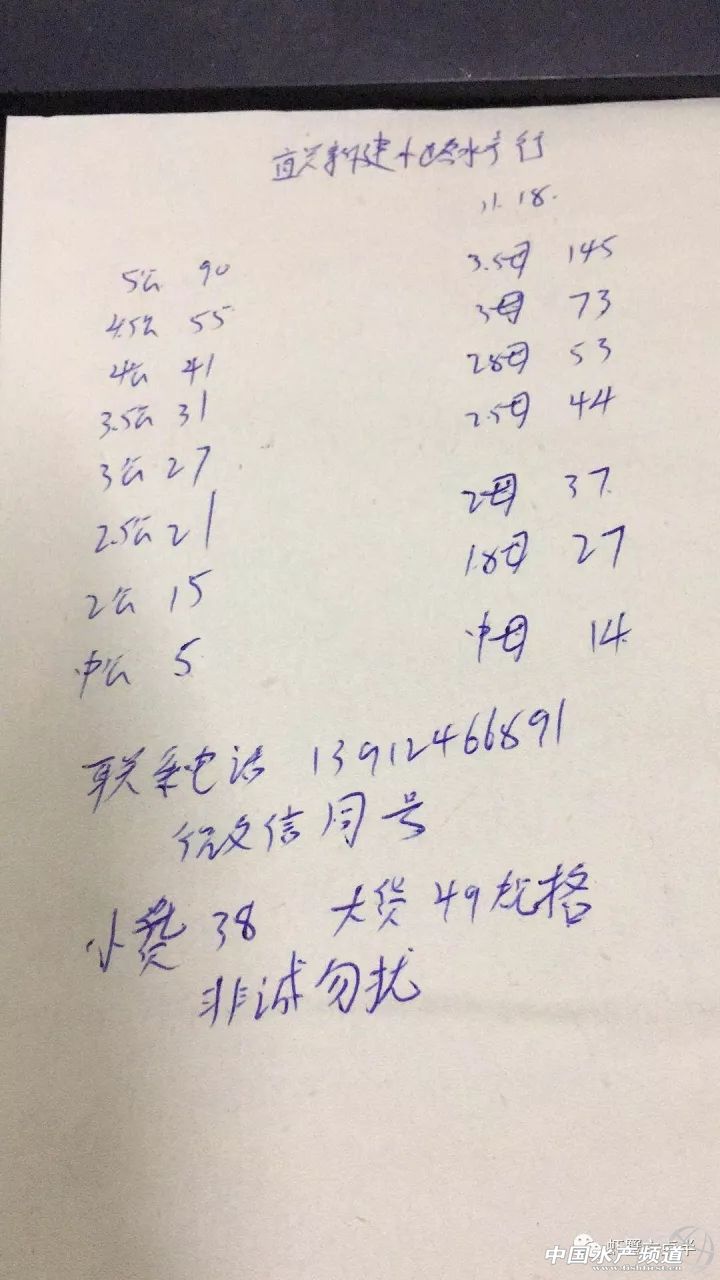 宜兴新建小陈水产行
11.18.
5公 90 3.5母 145
4.5公 55 3母 73
4公 41 2.8母 53
3.5公 31 2.5母 44
3公 27 2母 37
2.5公 21 1.8母 27
2公 15 中母 14
中公 5
联系电话 13912466891
微信同号
小货 38 大货 49 规格
非诚勿扰
虾蟹六点半
中国水产频道
www.fishfirst.cn